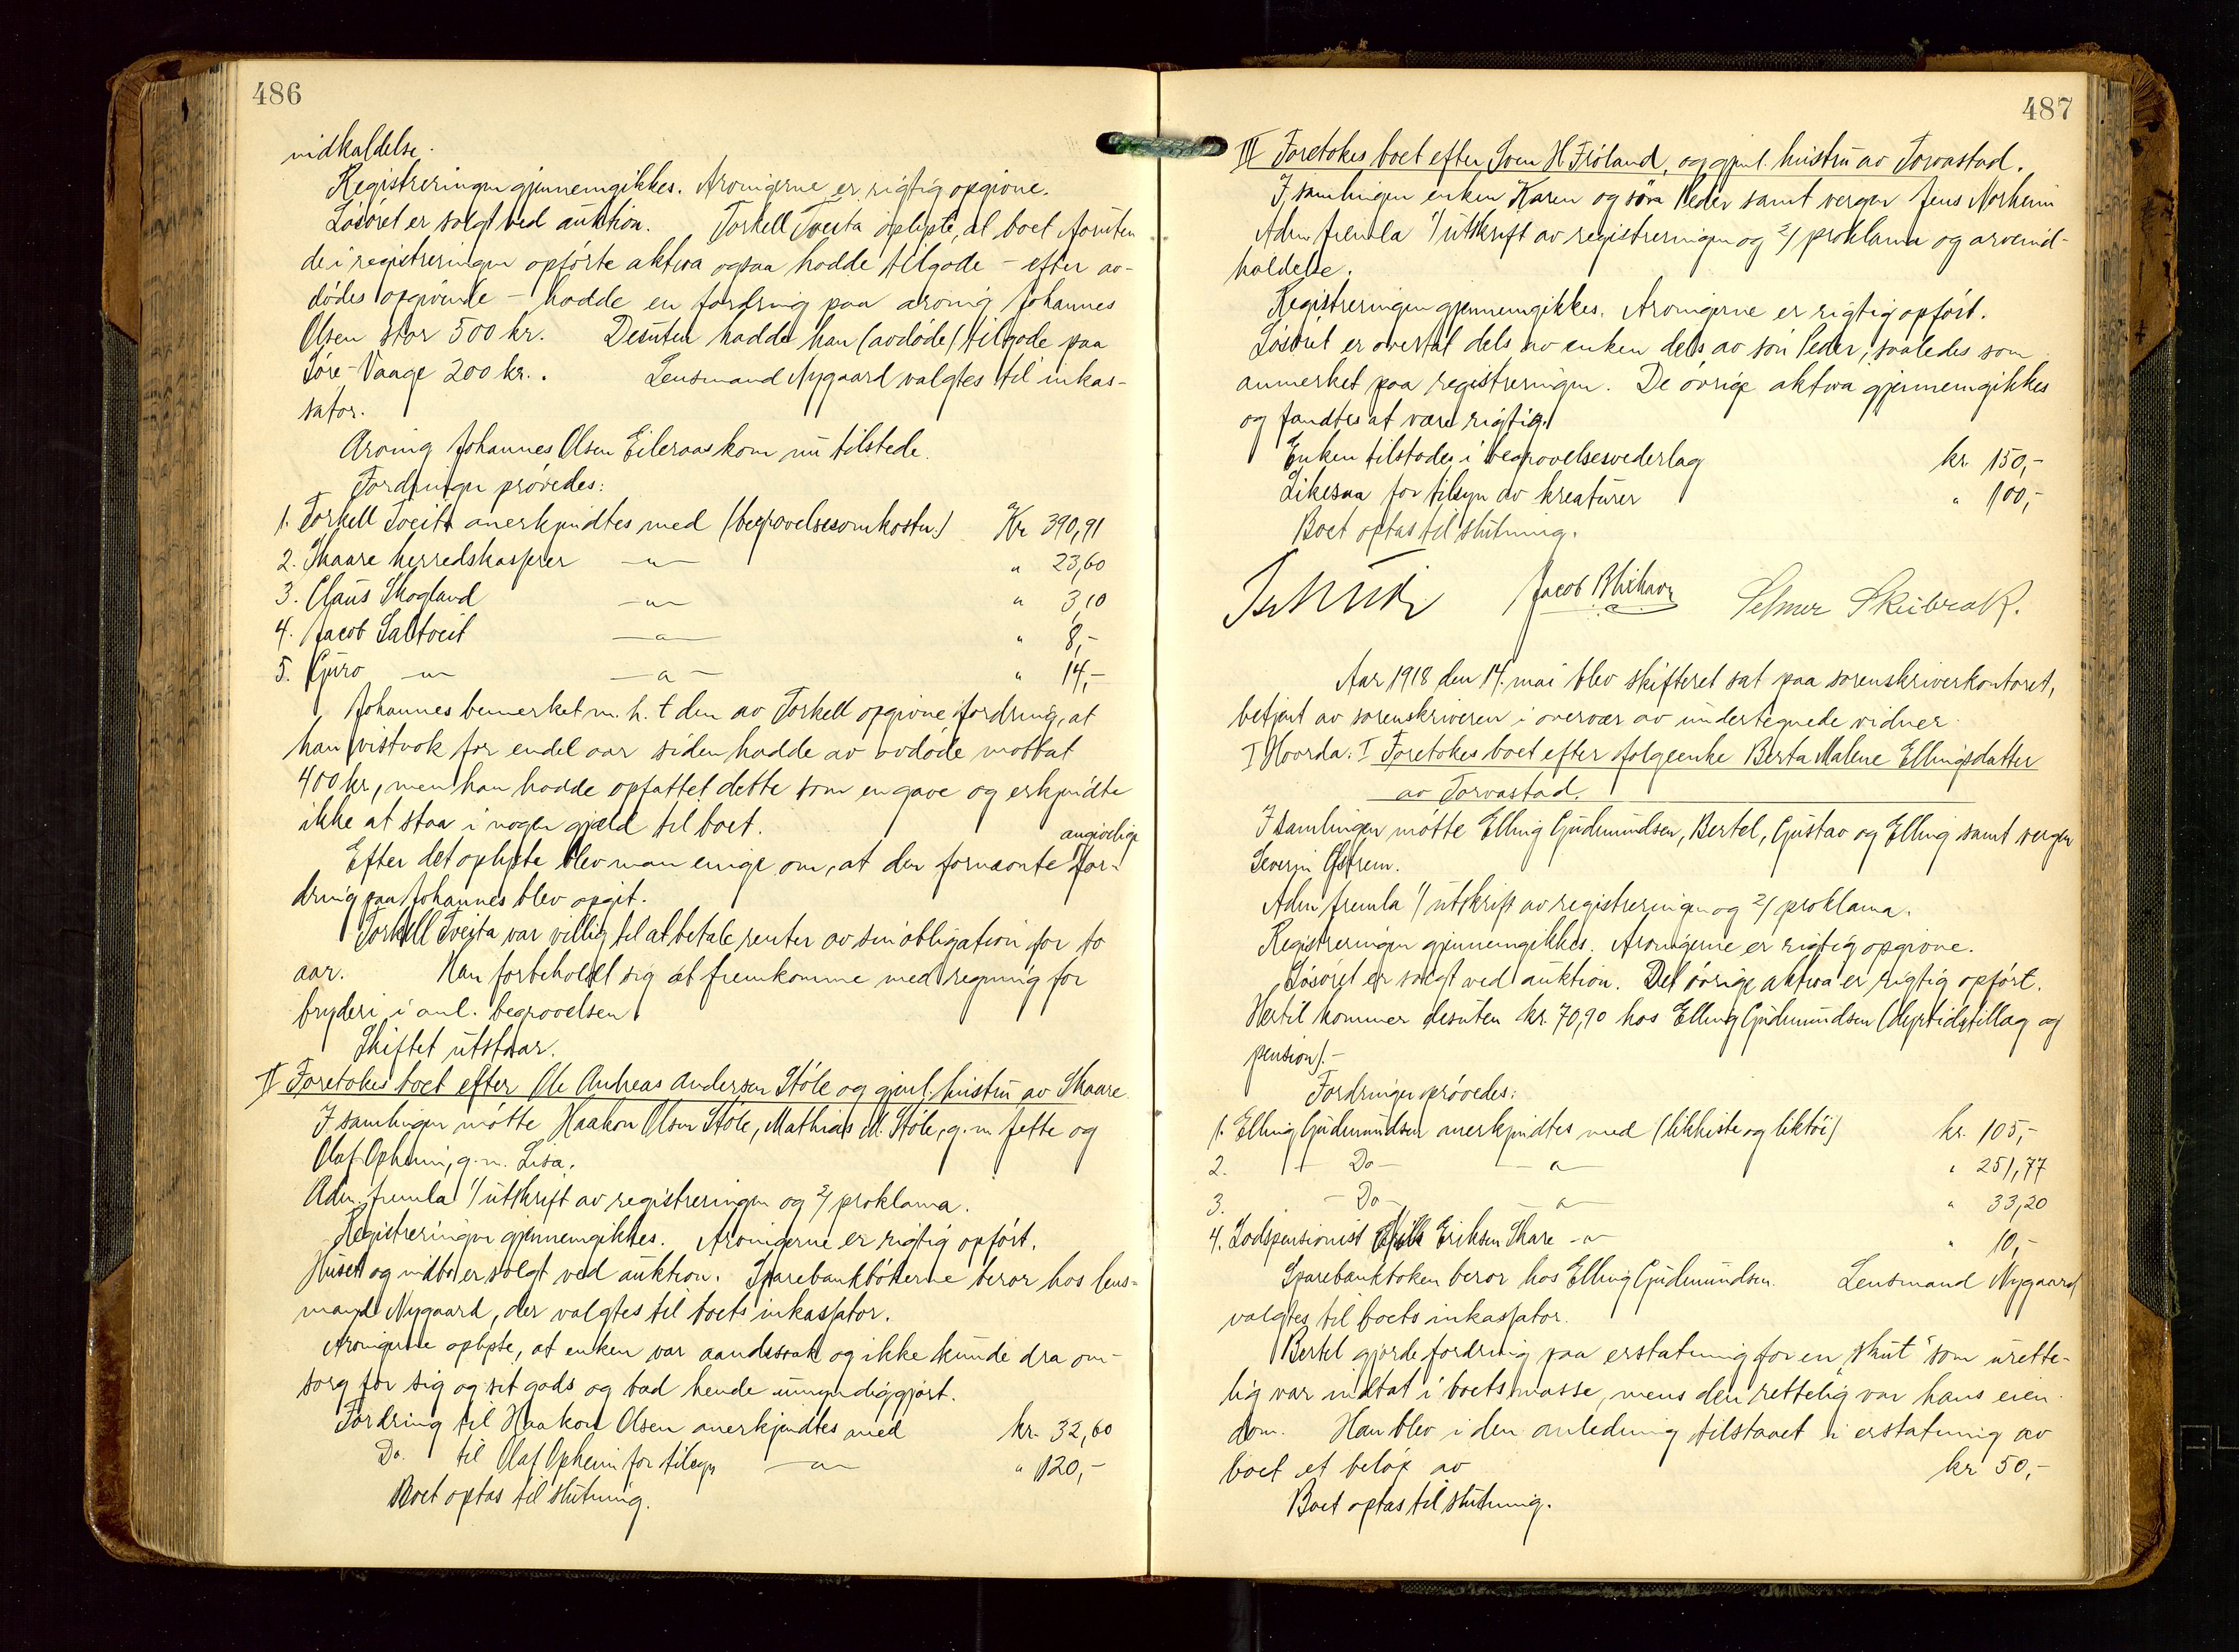 486
indkaldelse.
Registreringen gjennemgikkes. Arvingerne er rigtig opgivne.
Løsøret er solgt ved auktion. Torkell Tveita oplyste, at boet foruten
de i registreringen opførte aktiva ogsaa hadde tilgode – efter av-
dødes opgivende – hadde en fordring paa arving Johannes
Olsen stor 500 kr. Desuten hadde han (avdøde) tilgode paa
Tøre Vaage 200 kr.. Lensmand Nygaard valgtes til inkas-
sator.
Arving Johannes Olsen Eileraas kom nu tilstede.
Fordringer prøvedes:
1. Torkell Tveita anerkjendtes med (begravelsesomkostn.) Kr 390,91
2. Skaare herredskasserer –"– " 23,60
3. Claus Skogland –"– " 3,10
4. Jacob Saltveit –"– " 8,-
5. Guro –"– –"– " 14,-
Johannes bemerket m. h. t den av Torkell opgivne fordring, at
han vistnok for endel aar siden hadde av avdøde mottat
400 kr, men han hadde opfattet dette som en gave og erkjendte
ikke at staa i nogen gjæld til boet.
Efter det oplyste blev man enige om, at den fornævnte angivelige for-
dring paa Johannes blev opgit.
Torkell Tveita var villig til at betale renter av sin obligation for to
aar. Han forbeholdt sig at fremkomme med regning for
bryderi i anl. begravelsen.
Skiftet utstaar.
II Foretokes boet efter Ole Andreas Andersen Støle og gjenl. hustru av Skaare.
I samlingen møtte Haakon Olsen Støle, Mathias M. Støle, g. m. Jette og
Olaf Opheim, g. m. Lisa.
Adm. fremla 1/ utskrift av registreringen og 2/ proklama.
Registreringen gjennemgikkes. Arvingerne er rigtig opført.
Huset og indbo er solgt ved auktion. Sparebankbøkerne beror hos lens-
mand Nygaard, der valgtes til boets inkassator.
Arvingerne oplyste, at enken var aandssvak og ikke kunde dra om-
sorg for sig og sit gods og bad hende umyndiggjort.
Fordring til Haakon Olsen anerkjendtes med kr. 32,60
Do. til Olaf Opheim for tilsyn –"– " 120,-
Boet optas til slutning.
487
III Foretokes boet efter Sven H. Frøland, og gjenl. hustru av Torvastad.
I samlingen enken Karen og søn Peder samt vergen Jens Norheim
Adm. fremla 1/ utskrift av registreringen og 2/ proklama og arveind-
kaldelse.
Registreringen gjennemgikkes. Arvingerne er rigtig opført.
Løsøret er overtat dels av enken dels av søn Peder, saaledes som
anmerket paa registreringen. De øvrige aktiva gjennemgikkes
og fandtes at være rigtig.
Enken tilstodes i begravelsesvederlag kr. 150,-
Likesaa for tilsyn av kreaturer " 100,-
Boet optas til slutning.
Jacob Blikhavn Selmer Skeibrok.
Aar 1918 den 14. mai blev skifteret sat paa sorenskriverkontoret,
betjent av sorenskriveren i overvær av undertegnede vidner.
I Hvorda: I Foretokes boet efter følgeenke Berta Malene Ellingsdatter
av Torvastad.
I samlingen møtte Elling Gudmundsen, Bertel, Gustav og Elling samt vergen
Severin Østrem.
Adm. fremla 1/ utskrift av registreringen og 2/ proklama.
Registreringen gjennemgikkes. Arvingerne er rigtig opgivne.
Løsøret er solgt ved auktion. Det øvrige aktiva er rigtig opført.
Hertil kommer desuten kr. 70,90 hos Elling Gudmundsen (dyrtidstillæg og
pension).-
Fordringer prøvedes:
1. Elling Gudmundsen anerkjendtes med (likkiste og liktøi) kr. 105,-
2. – Do – –"– " 251,77
3. – Do – –"– " 33,20
4. Lodspensionist Eriksen Skare –"– " 10,-
Sparebankboken beror hos Elling Gudmundsen. Lensmand Nygaard
valgtes til boets inkassator.
Bertel gjorde fordring paa erstatning for en "skut" som urette-
lig var indtat i boets masse, mens den rettelig var hans eien-
dom. Han blev i den anledning tilstaaet i erstatning av
boet et beløp av kr 50,-
Boet optas til slutning.